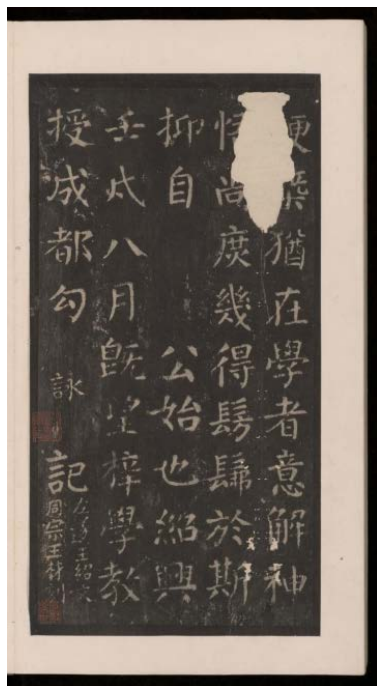 猶在學者意解神
悟尚庶幾得髣髴於斯
抑自 公始也紹興
壬戌八月旣望梓學教
授成都勾 詠 記